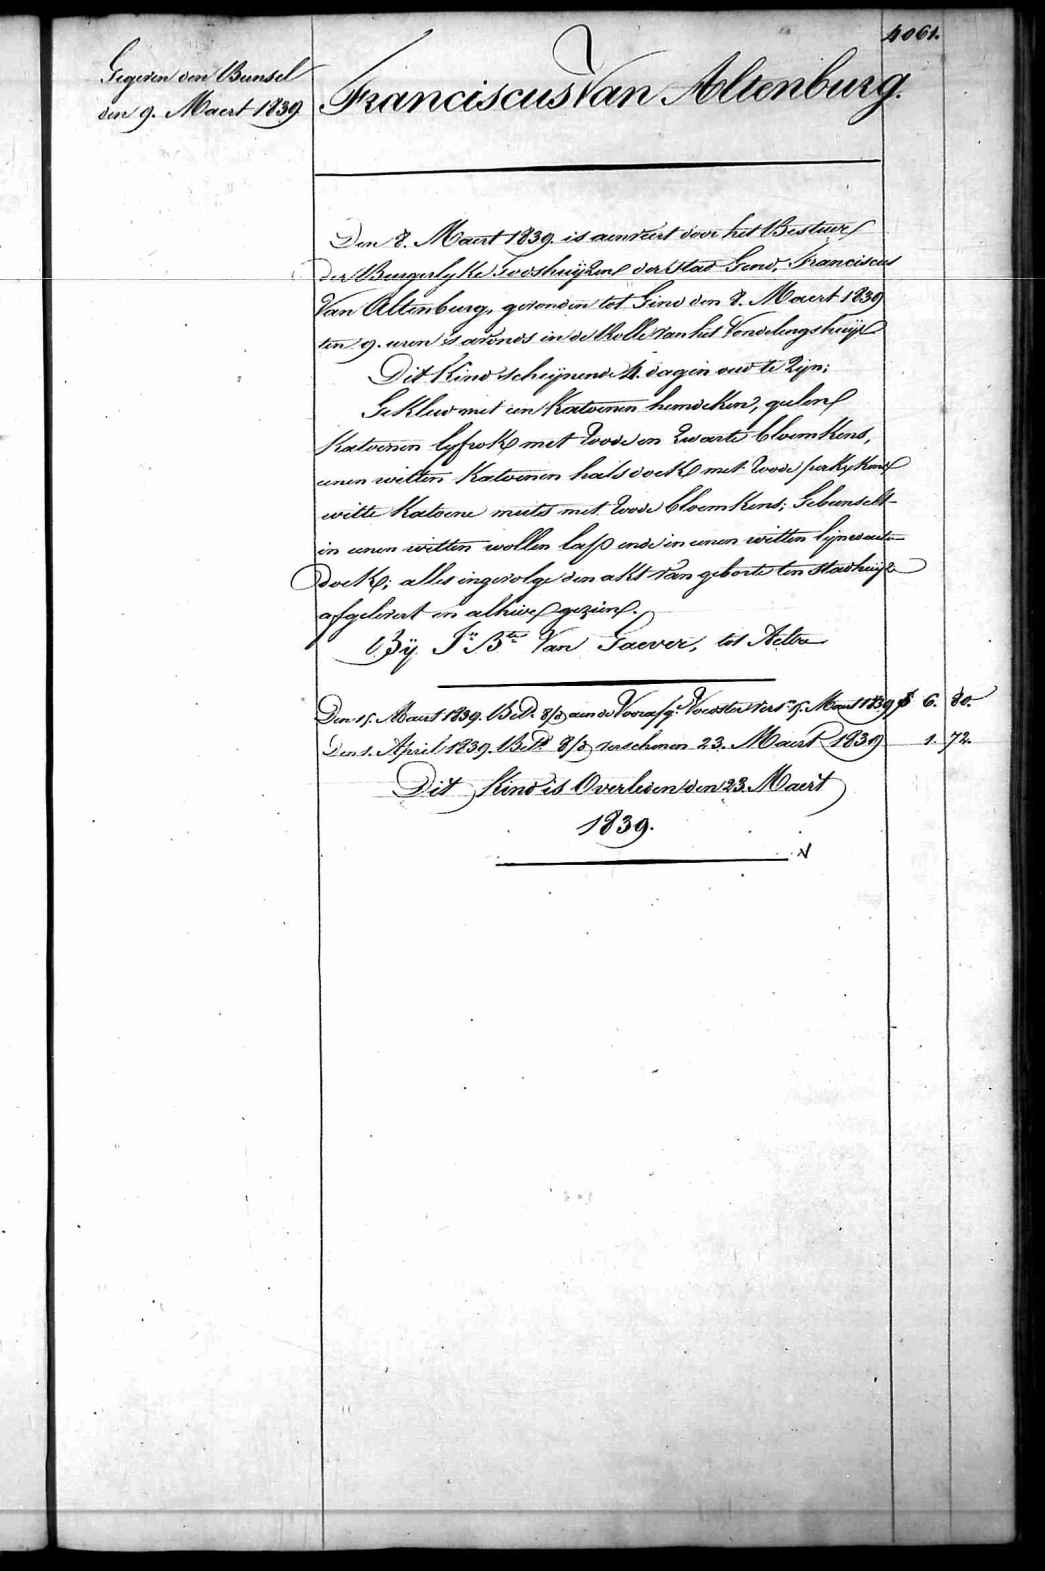 4061.
Gegeven den Bunsel
den 9. Maert 1839
Franciscus Van Altenburg.
Den 8. Maert 1839. is aenveert door het Bestuur
der Burgerlyke Godshuijzen der stad Gend, Franciscus
Van Altenburg, gevonden tot Gend den 8. Maert 1839
ten 9. uren s'avonds in de Rolle van het Vondelingshuijs
Dit Kind scheijnende 4. dagen oud te Zijn;
Gekleed met een Katoenen hemdeken, geelen
Katoenen lyfrok met Roode en Zwarte bloemkens,
eenen witten Katoenen halsdoek met Roode perkykens
witte Katoene muts met Roode bloemkens; Gebunselt
in eenen witten wollen lap ende in eenen witten lijnwaete
doek; alles ingevolge den akt van geborte ten stadhuijze
afgelevert en alhier gezien.
Bÿ Jn Bte Van Gaever, tot Aeltre
Den 15. Maert 1839. Bet.d 8/d aen de Voorafg. Voedster vers.n 15. Maert 1839 f 6. 80.
Den 1. April 1839. Bet.d 8/d verschenen 23. Maert 1839 1. 72.
Dit Kind is Overleden den 23. Maert
1839.